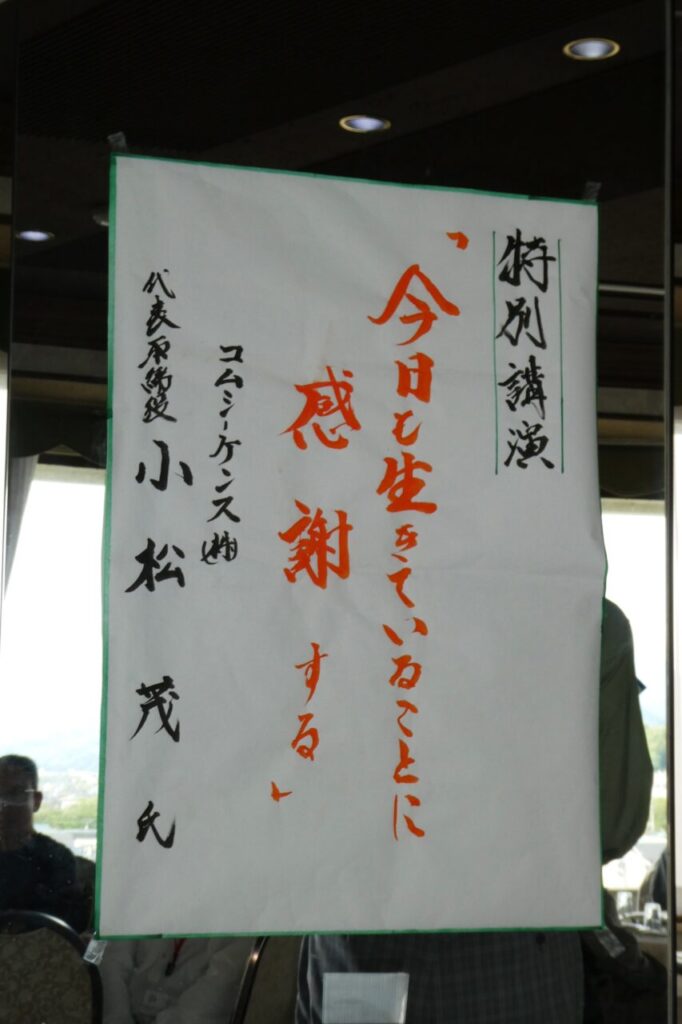 特別講演
「今日も生きていることに
感謝する」
コムシーケンス㈱
代表取締役 小松 茂 氏